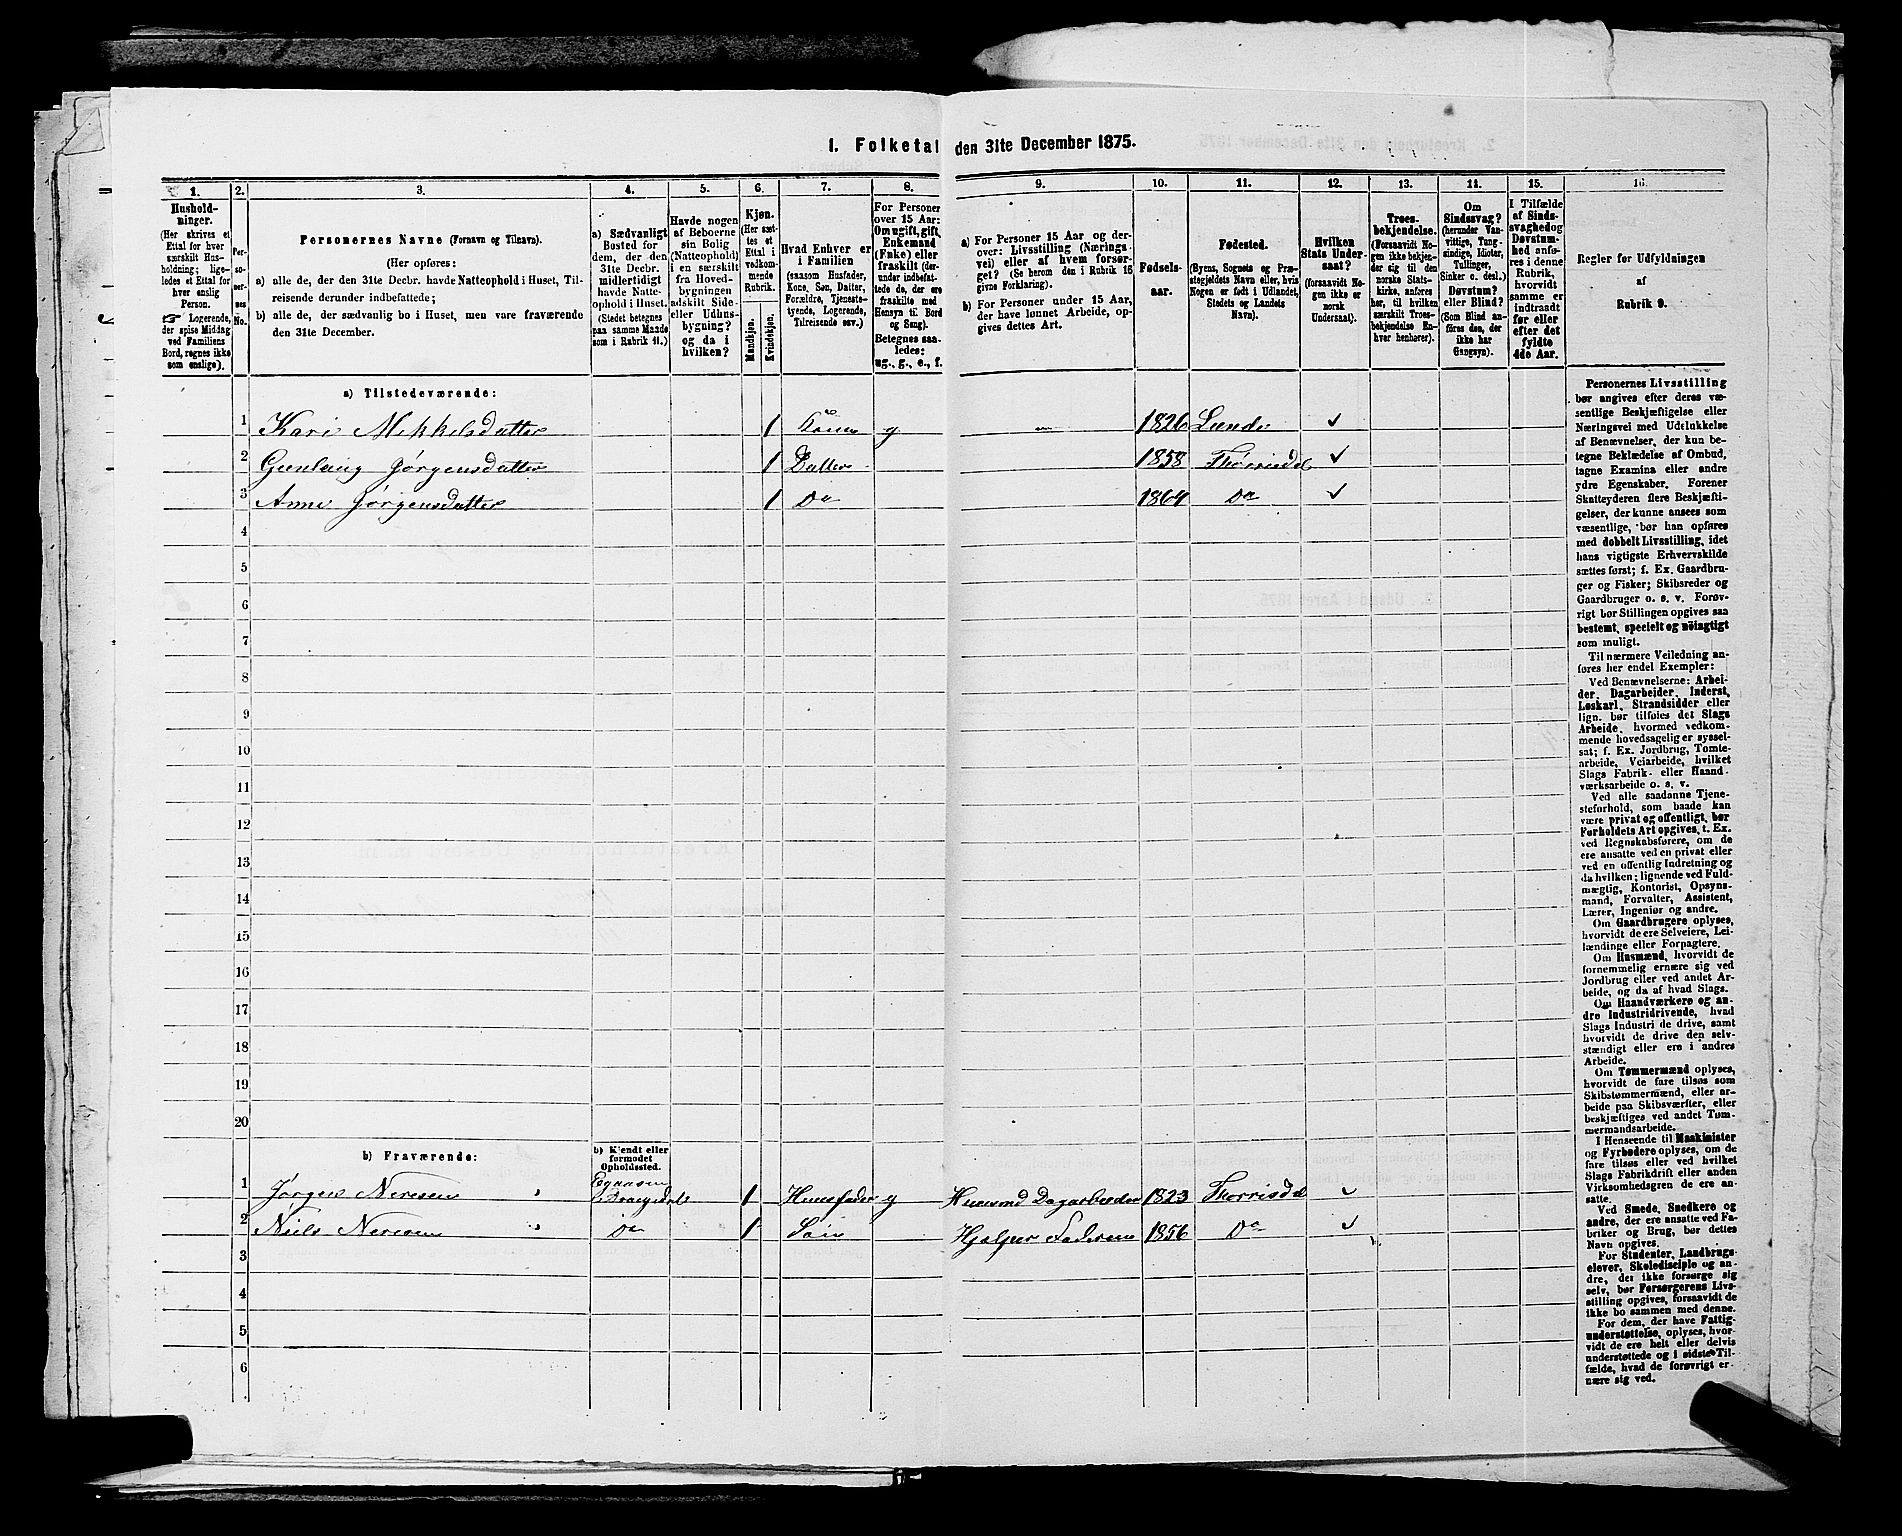 1. Folketal den 31te December 1875.
1. 2. 3. 4. 5. 6. 7. 8. 9. 10. 11. 12. 13. 14. 15. 16.
Hushold-
ninger.
(Her skrives et
Ettal for hver
særskilt Hus-
holdning; lige-
ledes et Ettal for
hver enslig
Person.
☞ Logerende,
der spise Middag
ved Familiens
Bord, regnes ikke
som enslige).
Per-
so-
ner-
nes
No.
Personernes Navne (Fornavn og Tilnavn).
(Her opføres:
a) alle de, der den 31te Decbr. havde Natteophold i Huset, Til-
reisende derunder indbefattede;
b) alle de, der sædvanlig bo i Huset, men vare fraværende
den 31te December.
a) Sædvanligt
Bosted for
dem, der den
31te Decbr.
midlertidigt
havde Natte-
ophold i Huset.
(Stedet betegnes
paa samme Maade
som i Rubrik 11.)
Havde nogen
af Beboerne
sin Bolig
(Natteophold)
i en særskilt
fra Hoved-
bygningen
adskilt Side-
eller Udhus-
bygning?
og da i
hvilken?
Kjøn.
(Her sæt-
tes et
Ettal i
vedkom-
mende
Rubrik.
Mandkjøn.
Kvindekjøn.
Hvad Enhver er
i Familien
(saasom Husfader,
Kone, Søn, Datter,
Forældre, Tjeneste-
tyende, Logerende,
Tilreisende osv.)
For Personer
over 15 Aar:
Om ugift, gift,
Enkemand
(Enke) eller
fraskilt (der-
under indbefat-
tede de, der ere
fraskilte med
Hensyn til Bord
og Seng).
Betegnes saa-
ledes:
ug., g., e., f.
a) For Personer 15 Aar og der-
over: Livsstilling (Nærings-
vei) eller af hvem forsør-
get? (Se herom den i Rubrik 16
givne Forklaring).
b) For Personer under 15 Aar,
der have lønnet Arbeide, op-
gives dettes Art.
Fødsels-
aar.
Fødested.
(Byens, Sognets og Præ-
stegjeldets Navn eller, hvis
Nogen er født i Udlandet,
Stedets og Landets
Navn).
Hvilken
Stats Under-
saat?
(forsaavidt No-
gen ikke er
norsk
Undersaat).
Troes-
bekjendelse.
(Forsaavidt No-
gen ikke bekjen-
der sig til den
norske Stats-
kirke, anføres
her, til hvilken
særskilt Troes-
bekjendelse En-
hver henhører).
Om
Sindssvag?
(herunder Van-
vittige, Tung-
sindige, Idioter,
Tullinger,
Sinker o. desl.)
Døvstum?
eller Blind?
(Som Blind an-
føres den, der
ikke har
Gangsyn).
I Tilfælde
af Sinds-
svaghed og
Døvstum-
hed anfø-
res i denne
Rubrik,
hvorvidt
samme er
indtraadt
før eller
efter det
fyldte
4de Aar.
Regler for Udfyldningen
af
Rubrik 9.
a) Tilstedeværende:
1 Kari Mikkelsdatter 1 Kone g 1826 Lunde ✓
2 Gunlaug Jørgensdatter 1 Datter 1858 Thorrisdal ✓
3 Anne Jørgensdatter 1 Do 1864 Do ✓
4
5
6
7
8
9
10
11
12
13
14
15
16
17
18
19
20
b) Fraværende:
b) Kjendt eller
formodet
Opholdssted.
1 Jørgen Neresen 1 Huusfader g Huusmd Dagarbeider 1823 Thorrisdal ✓
2 Niels Neresen Do 1 Søn Hjelper Faderen 1856 Do ✓
3
4
5
6
Personernes Livsstilling
bør angives efter deres væ-
sentlige Beskjæftigelse eller
Næringsvei med Udelukkelse
af Benævnelser, der kun be-
tegne Beklædelse af Ombud,
tagne Examina eller andre
ydre Egenskaber. Forener
Skatteyderen flere Beskjæfti-
gelser, der kunne ansees som
væsentlige, bør han opføres
med dobbelt Livsstilling, idet
hans vigtigste Erhvervskilde
sættes først; f. Ex. Gaardbru-
ger og Fisker; Skibsreder og
Gaardbruger o. s. v. Forøv-
rigt bør Stillingen opgives saa
bestemt, specielt og nøiagtigt
som muligt.
Til nærmere Veiledning an-
føres her endel Exempler:
Ved Benævnelserne: Arbei-
der, Dagarbeider, Inderst,
Løskarl, Strandsidder eller
lign. bør tilføies det Slags
Arbeide, hvormed vedkom-
mende hovedsagelig er syssel-
sat; f. Ex. Jordbrug, Tomte-
arbeide, Veiarbeide, hvilket
Slags Fabrik- eller Haand-
værksarbeide o. s. v.
Ved alle saadanne Tjene-
steforhold, som baade kan
være privat og offentligt, bør
Forholdets Art opgives, t. Ex.
ved Regnskabsførere, om de
ere ansatte ved en privat eller
ved en offentlig Indretning og
da hvilken; lignende ved Fuld-
mægtig, Kontorist, Opsyns-
mand, Forvalter, Assistent,
Lærer, Ingeniør og andre.
Om Gaardbrugere oplyses,
hvorvidt de ere Selveiere, Lei-
lændinge eller Forpagtere.
Om Husmænd, hvorvidt de
fornemmelig ernære sig ved
Jordbrug eller ved andet Ar-
beide, og da af hvad Slags.
Om Haandværkere og an-
dre Industridrivende, hvad
Slags Industri de drive, samt
hvorvidt de drive den selv-
stændigt eller ere i andres
Arbeide.
Om Tømmermænd oplyses,
hvorvidt de fare tilsøs som
Skibstømmermænd, eller ar-
beide paa Skibsværfter, eller
beskjæftiges ved andet Tøm-
mermandsarbeide.
I Henseende til Maskinister
og Fyrbødere oplyses, om de
fare tilsøs eller ved hvilket
Slags Fabrikdrift eller anden
Virksomhedsgren de ere an-
satte.
Ved Smede, Snedkere og
andre, der ere ansatte ved Fa-
briker og Brug, bør dettes
Navn opgives.
For Studenter, Landbrugs-
elever, Skoledisciple og an-
dre, der ikke forsørge sig
selv, bør Forsørgerens Livs-
stilling opgives, forsaavidt de
ikke bo sammen med denne.
For dem, der have Fattig-
understøttelse, oplyses, hvor-
vidt de ere helt eller delvis
understøttede og i sidste Til-
fælde, hvad de forøvrigt er-
nære sig ved.